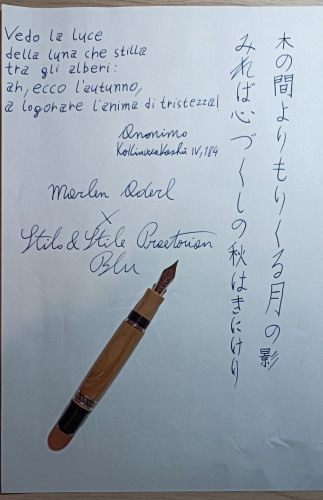 Vedo la luce
della luna che stilla
tra gli alberi:
ah, ecco l'autunno,
a logorare l'anima di tristezza!
Anonimo
Kokinwakashū IV, 184
Marlen Aderl
×
Stilo & Stile Praetorian
Blu
木の間よりもりくる月の影
みれば心づくしの秋はきにけり